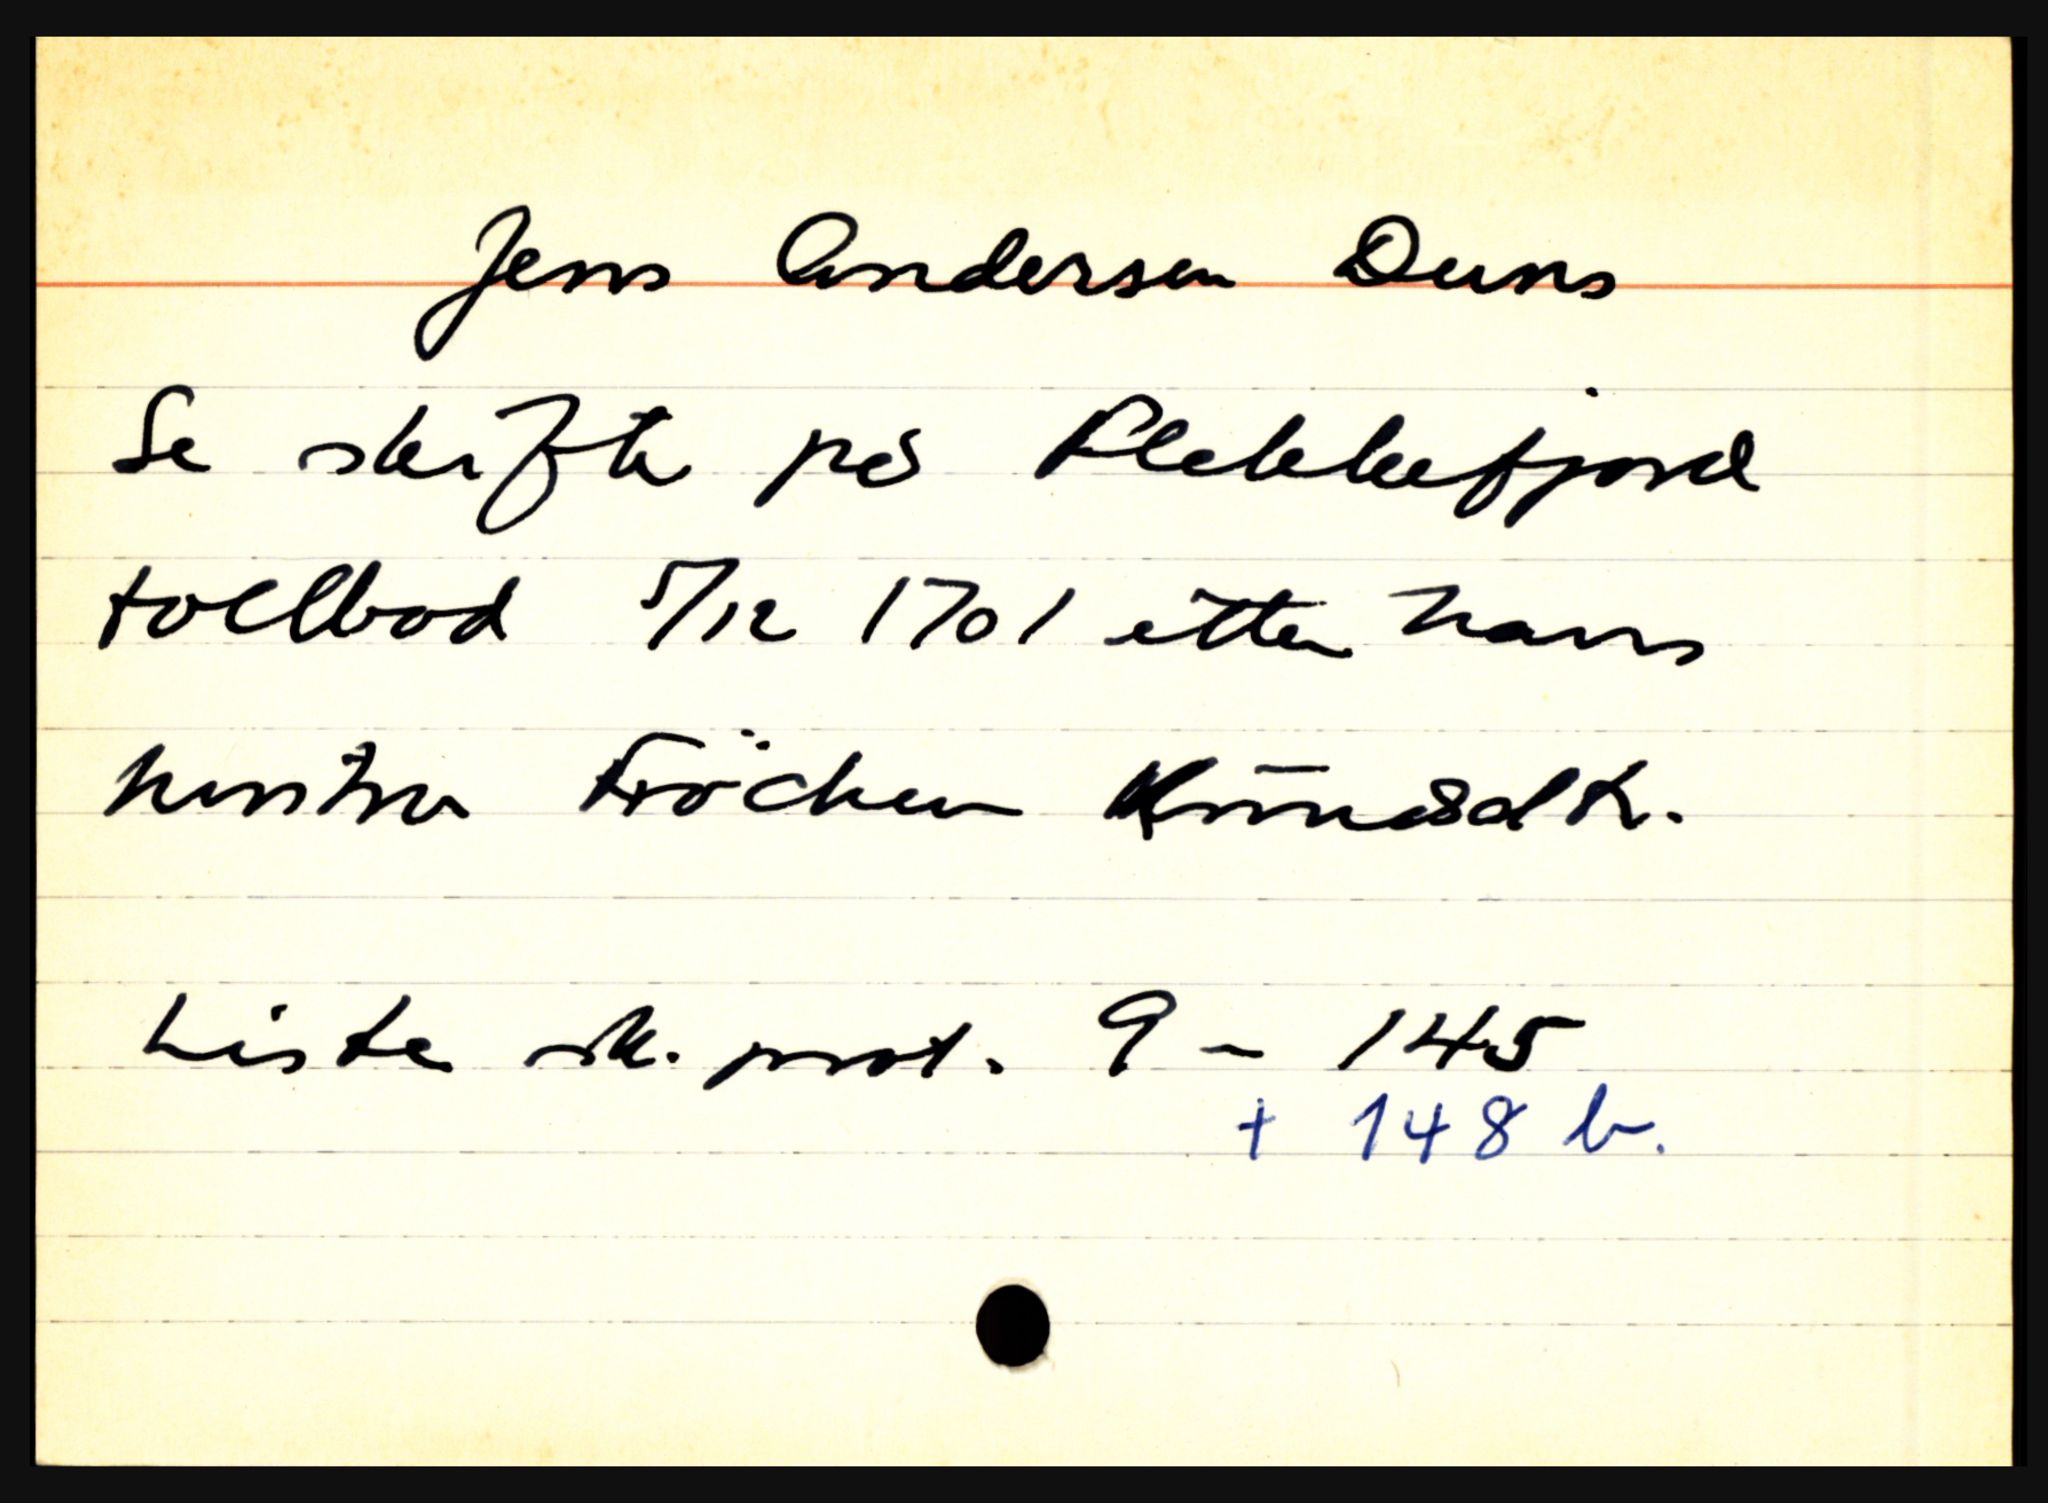 Jens Andersen Duns
Se skifte på Flekkefjord
tollbod 5/12 1701 etter hans
hustru Fröchen
Lister sk. prot. 9 - 145
+ 148 b.